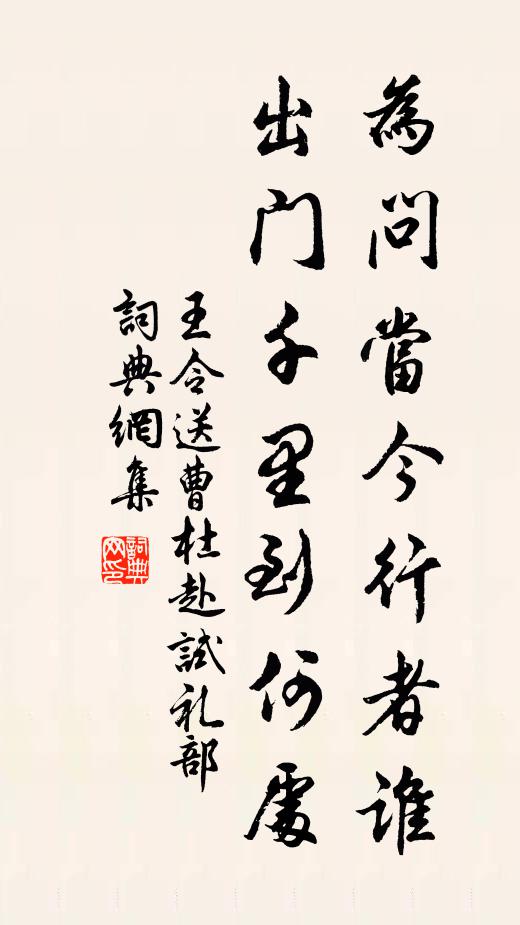 為問當今行者誰
出門千里到何處
王令送曹杜赴試礼部
詞典網集
詞典网印